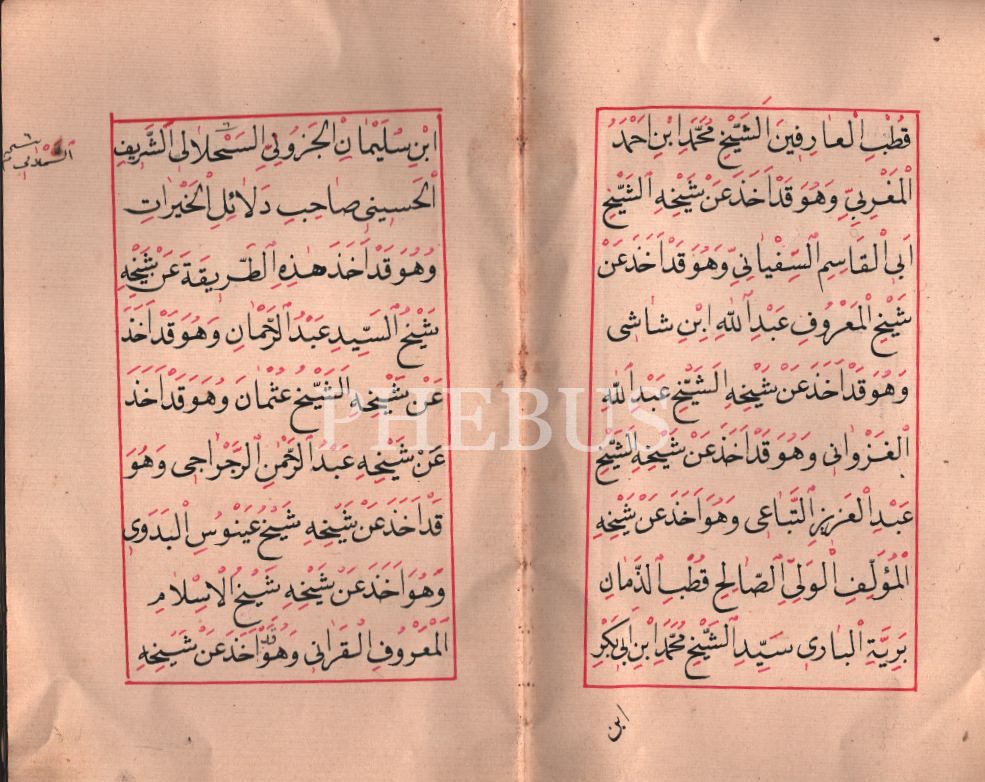 قُطْبِ الْعَارِفِينَ الشَّيْخِ مُحَمَّدِ ابْنِ اَحْمَدَ
الْمَغْرِبِيِّ وَهُوَ قَدْ اَخَذَ عَنْ شَيْخِهِ الشَّيْخِ
اَبِى الْقَاسِمِ السِّفْيَانِيِّ وَهُوَ قَدْ اَخَذَ عَنْ
شَيْخِ الْمَعْرُوفِ عَبْدِ اللّٰهِ ابْنِ شَاشِى
وَهُوَ قَدْ اَخَذَ عَنْ شَيْخِهِ الشَّيْخِ عَبْدِ اللّٰهِ
الْغَزْوَانِى وَهُوَ قَدْ اَخَذَ عَنْ شَيْخِهِ الشَّيْخِ
عَبْدِ الْعَزِيزِ التَّبَاعِى وَهُوَ اَخَذَ عَنْ شَيْخِهِ
الْمُؤَلِّفِ الْوَلِىِّ الصَّالِحِ قُطْبِ الذَّمَانِ
بَرِيَّةِ الْبَارِى سَيِّدِ الشَّيْخِ مُحَمَّدِ ابْنِ اَبِى بَكْرِ
ابن
ابْنِ سُلَيْمَانِ الْجَزُولِىِّ السَّحْلَالِى الشَّرِيفِ
الْحَسِينِى صَاحِبِ دَلَائِلِ الْخَيْرَاتِ
وَهُوَ قَدْ اَخَذَ هٰذِهِ الطَّرِيقَةَ عَنْ شَيْخِهِ
شَيْخِ السَّيِّدِ عَبْدُ الرَّحْمَانِ وَهُوَ قَدْ اَخَذَ
عَنْ شَيْخِهِ الشَّيْخِ عُثْمَانَ وَهُوَ قَدْ اَخَذَ
عَنْ شَيْخِهِ عَبْدُ الرَّحْمٰنِ الرَّجْرَاجِى وَهُوَ
قَدْ اَخَذَ عَنْ شَيْخِهِ شَيْخُ عَيْنُوسِ الْبَدَوِى
وَهُوَ اَخَذَ عَنْ شَيْخِهِ شَيْخُ الْاِسْلَامِ
الْمَعْرُوفِ الْقَرَانِى وَهُوَ قد اَخَذَ عَنْ شَيْخِهِ
PHEBUS